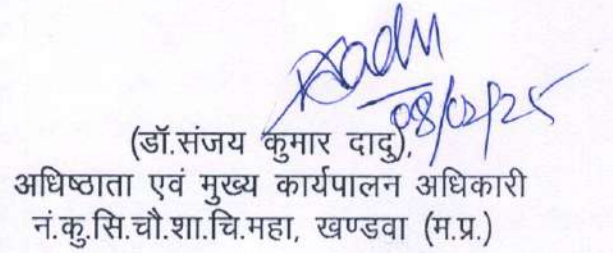 Dadu
08/02/25
(डॉ.संजय कुमार दादु),
अधिष्ठाता एवं मुख्य कार्यपालन अधिकारी
नं.कु.सि.चौ.शा.चि.महा, खण्डवा (म.प्र.)